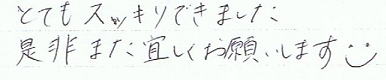 とてもスッキリできました
是非また宜しくお願いします